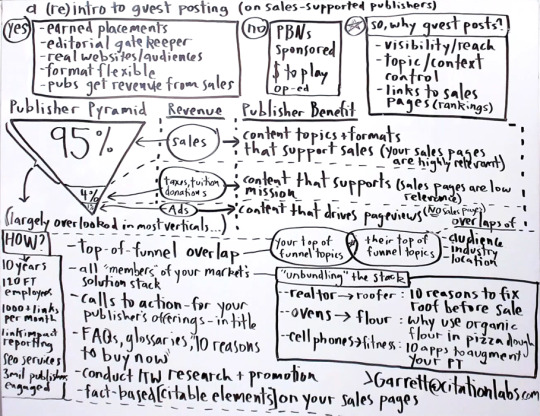 a (re)intro to guest posting (on sales-supported publishers)
Yes
-earned placements
-editorial gatekeeper
-real websites/audiences
-format flexible
-pubs get revenue from sales
no
PBNs
Sponsored
$ to play
op-ed
so, why guest posts?
-visibility/reach
-topic/context
control
-links to sales
pages (rankings)
Publisher Pyramid
Revenue
Publisher Benefit
95%
sales
content topics + formats
that support sales (your sales pages
are highly relevant)
4%
taxes, tuition
donations
content that supports (sales pages are low
mission relevance)
Ads
content that drives pageviews (No sales pages)
(largely overlooked in most verticals...)
HOW?
10 years
120 FT
employees
1000+ links
per month
link impact
reporting
seo services
3mil publishers
engaged
-top-of-funnel overlap
your top of
funnel topics
their top of
funnel topics
overlaps of
-audience
-industry
-location
-all "members" of your market's
solution stack
-calls to action-for your
publisher's offerings-in title
-FAQs, glossaries, "10 reasons
to buy now"
-conduct ITW research + promotion
-fact-based [citable elements] on your sales pages
"unbundling" the stack
-realtor → roofer : 10 reasons to fix
roof before sale
-ovens → flour : why use organic
flour in pizza dough
-cell phones → fitness : 10 apps to augment
your PT
>Garrett@citationlabs.com